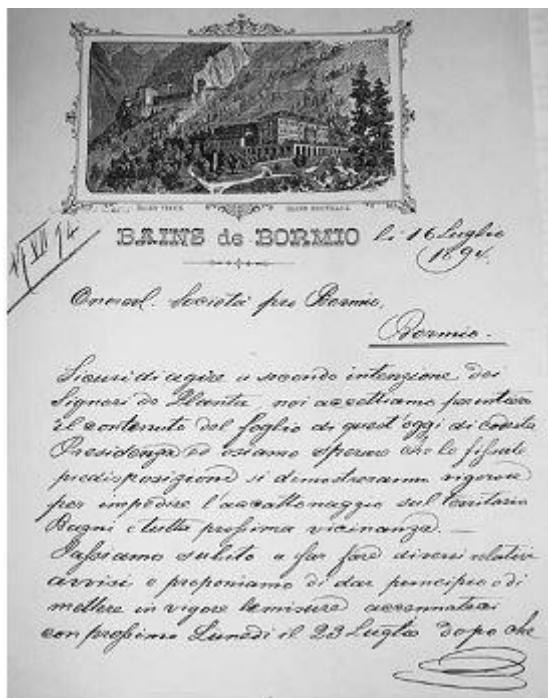 BAINS de BORMIO li 16 Luglio
1894.
Onorevol. Società pro Bormio,
Bormio.
Sicuri di agire a secondo intenzione dei
Signori de Planta noi accettiamo
il contenuto del foglio di quest'oggi di codesta
Presidenza ed osiamo sperare che le fissate
predisposizioni si dimostreranno
per impedire l'accattonaggio sul territorio
Bagni e tutta prossima vicinanza. —
Passiamo subito a far fare diversi relativi
avvisi e proponiamo di dar principio e di
mettere in vigore le misure
con prossimo Lunedi il 23 Luglio dopo che